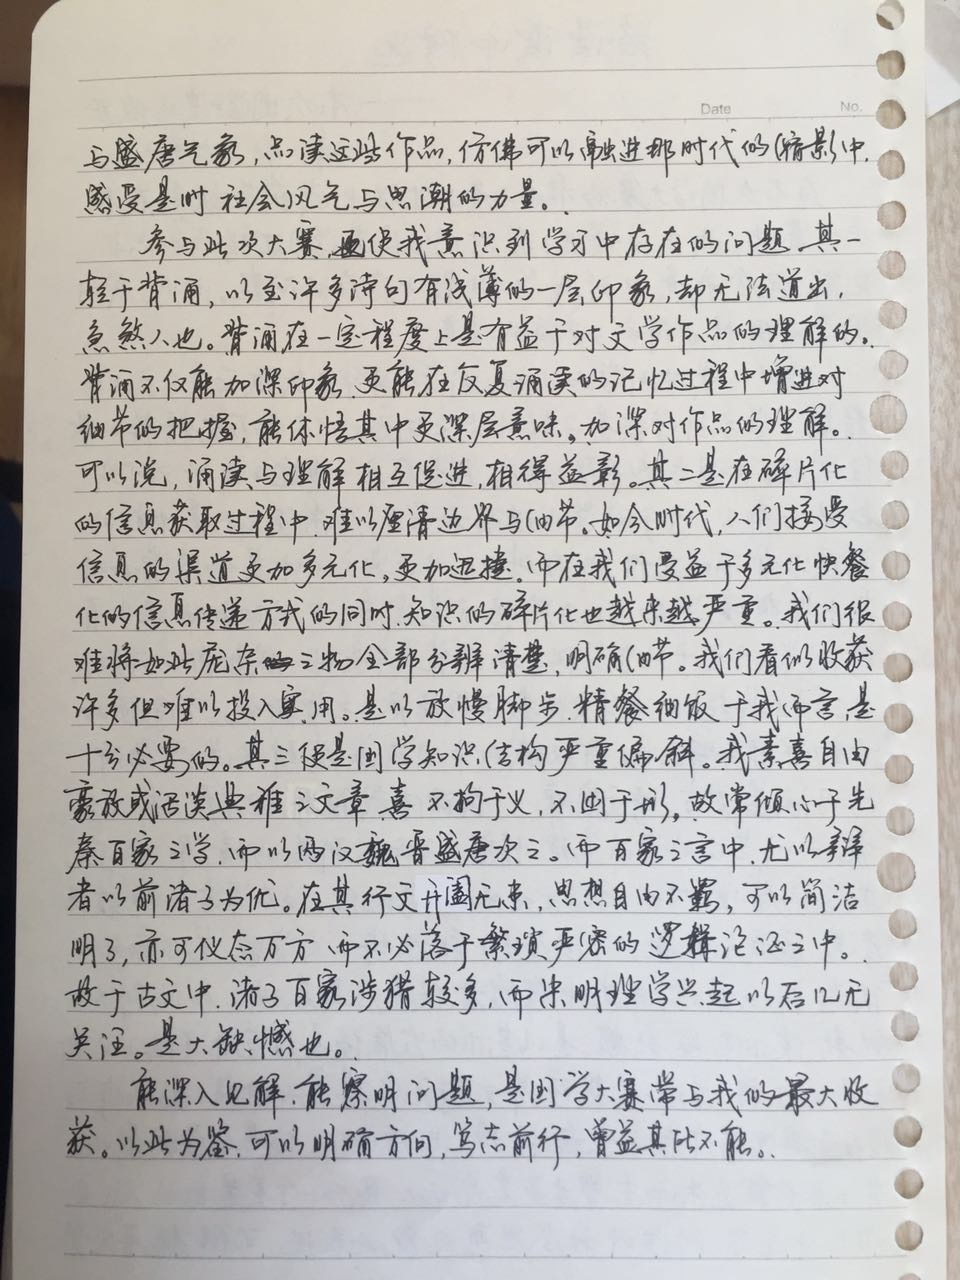 Date No.
与盛唐气象，点读这些作品，仿佛可以融进那时代的缩影中，
感受是时社会风气与思潮的力量。
参与此次大赛，更使我意识到学习中存在的问题，其一
轻于背诵，以至许多诗句有浅薄的一层印象，却无法道出，
急煞人也。背诵在一定程度上是有益于对文学作品的理解的。
背诵不仅能加深印象，更能在反复诵读的记忆过程中增进对
细节的把握，能体悟其中更深层意味。加深对作品的理解。
可以说，诵读与理解相互促进，相得益彰。其二是在碎片化
的信息获取过程中，难以厘清边界与细节。如今时代，人们接受
信息的渠道更加多元化，更加迅捷。而在我们受益于多元化快餐
化的信息传递方式的同时，知识的碎片化也越来越严重。我们很
难将如此庞杂之物全部分辨清楚，明确细节。我们看似收获
许多但难以投入实用。是以放慢脚步，精餐细饭于我而言，是
十分必要的。其三便是国学知识结构严重偏斜。我素喜自由
豪放或活淡典雅之文章，喜不拘于义，不困于形，故常倾心于先
秦百家之学，而以两汉魏晋盛唐次之。而百家之言中，尤以辩
者以前诸子为优。在其行文开阖无束，思想自由不羁，可以简洁
明了，亦可仪态万方，而不必落于繁琐严密的逻辑论证之中。
故于古文中，诸子百家涉猎较多，而宋明理学兴起以后几无
关注。是大缺憾也。
能深入见解，能察明问题，是国学大赛带与我的最大收
获。以此为鉴，可以明确方向，笃志前行，曾益其所不能。